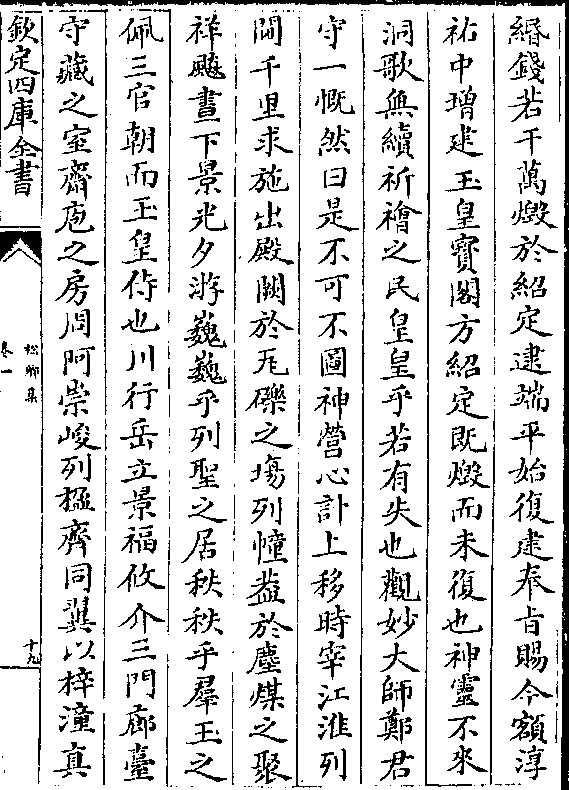 緡錢若干萬燬於紹定逮端平始復建奉旨賜今額淳
祐中增建玉皇寳閣方紹定既燬而未復也神靈不來
洞歌無續祈禬之民皇皇乎若有失也觀妙大師鄭君
守一慨然曰是不可不圖神營心計上移時宰江淮列
閫千里求施出殿闕於瓦礫之塲列幢葢於塵煤之聚
祥飈晝下景光夕游巍巍乎列聖之居秩秩乎羣玉之
佩三官朝而玉皇侍也川行岳立景福攸介三門廊臺
守藏之室齋庖之房周阿崇峻列楹齊同翼以梓潼真
欽定四庫全書
松鄉集
卷一
十九